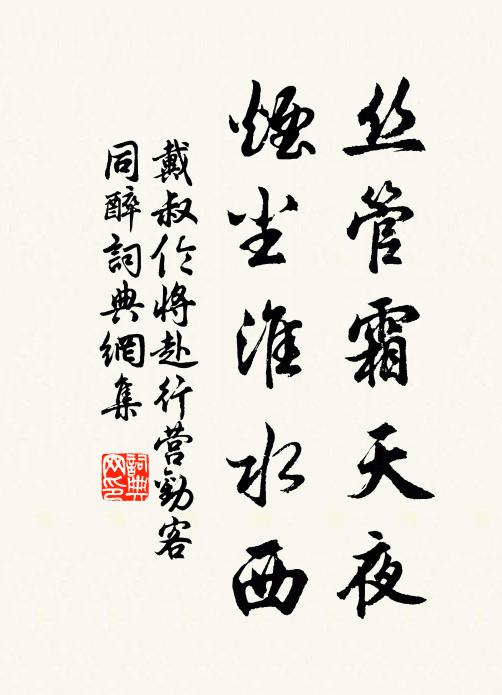 丝管霜天夜
烟尘淮水西
戴叔伦将赴行营劝客
同醉词典網集
詞典
网印